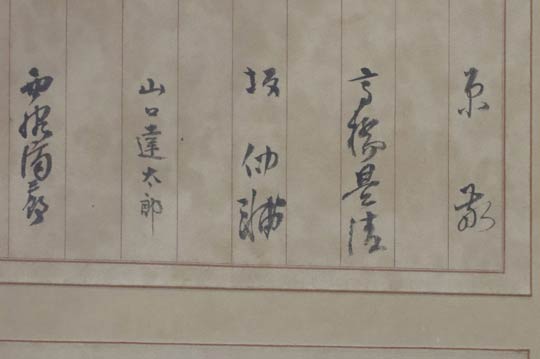 原敬
高橋是清
坂仲輔
山口達太郎
西脇済三郎